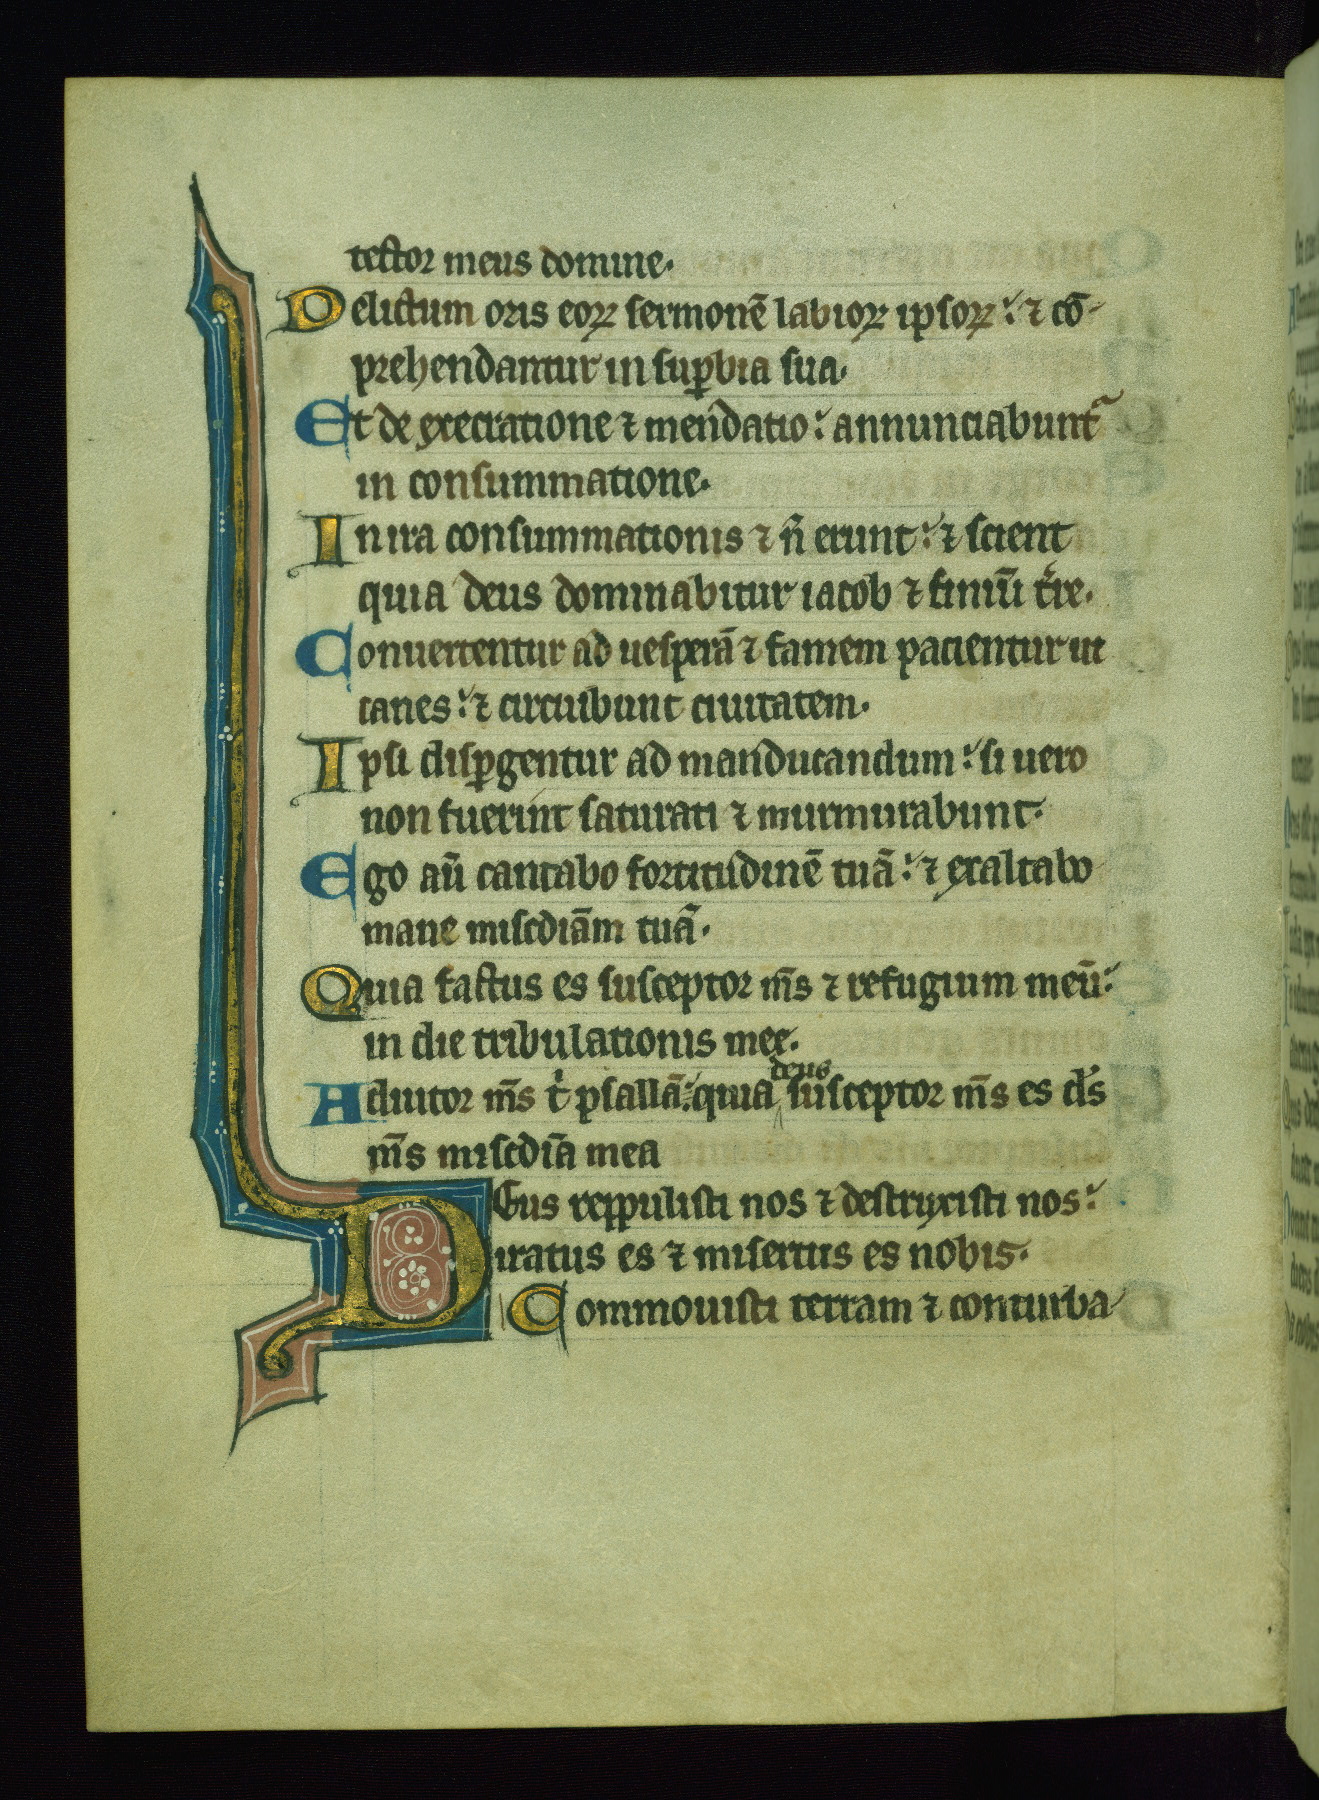 tector meus domine.
Delictum oris eoꝝ sermonē labioꝝ ipsoꝝ: ⁊ cō
prehendantur in suꝑbia sua.
Et de execratione ⁊ mendatio: annunciabunt᷑
in consummatione.
In ira consummationis ⁊ n̄ erunt: ⁊ scient
quia deus dominabitur iacob ⁊ finiū t̄re.
Conuertentur ad uesperā ⁊ famem pacientur ut
canes: ⁊ circuibunt ciuitatem.
Ipsi disꝑgentur ad manducandum: si uero
non fuerint saturati ⁊ murmurabunt.
Ego aū cantabo fortitudinē tuā: ⁊ exaltabo
mane miscdiām tuā.
Quia factus es susceptor m̄s ⁊ refugium meū:
in die tribulationis mee.
Adiutor m̄s t̄ psallā: quia deus susceptor m̄s es d̄s
m̄s miscdīa mea
Deus reppulisti nos ⁊ destruxisti nos:
iratus es ⁊ misertus es nobis.
Commouisti terram ⁊ conturba